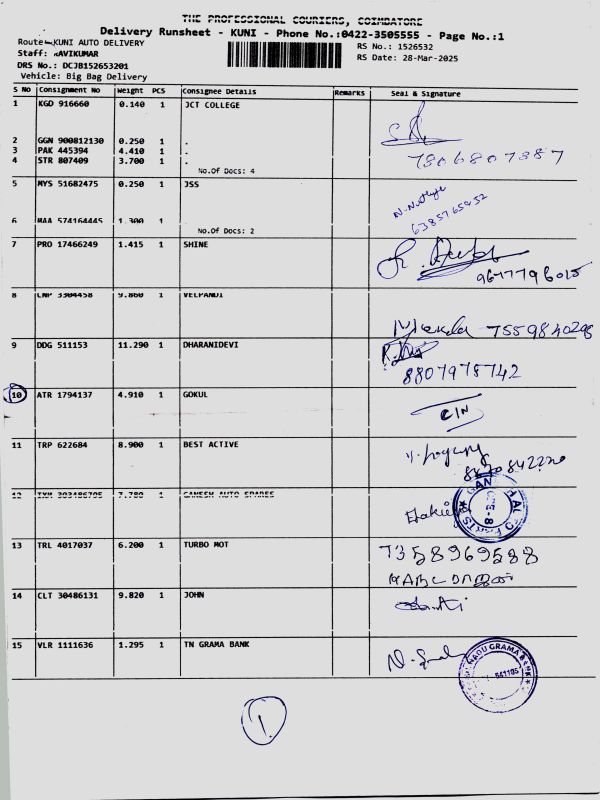 THE PROFESSIONAL COURIERS, COIMBATORE
Delivery Runsheet - KUNI - Phone No.:0422-3505555 - Page No.:1
Route:-KUNI AUTO DELIVERY
Staff: RAVIKUMAR
DRS No.: DCJB152653201
Vehicle: Big Bag Delivery
RS No.: 1526532
RS Date: 28-Mar-2025
S No Consignment No Weight PCS Consignee Details Remarks Seal & Signature
1 KGD 916660 0.140 1 JCT COLLEGE
2 GGN 900812130 0.250 1 .
3 PAK 445394 4.410 1 .
4 STR 807409 3.700 1 .
No.Of Docs: 4
7306807387
5 MYS 51682475 0.250 1 JSS
6385765852
6 MAA 574164445 1.300 1
No.Of Docs: 2
7 PRO 17466249 1.415 1 SHINE
8 CNP 3304458 9.860 1 VELPANDI
7559840298
9 DDG 511153 11.290 1 DHARANIDEVI
8807978742
10 ATR 1794137 4.910 1 GOKUL
11 TRP 622684 8.900 1 BEST ACTIVE
12 TXM 303486705 7.780 1 GANESH AUTO SPARES
13 TRL 4017037 6.200 1 TURBO MOT
7358969588
14 CLT 30486131 9.820 1 JOHN
15 VLR 1111636 1.295 1 TN GRAMA BANK
NADU GRAMA BANK
641105
1